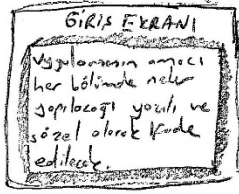 GİRİŞ EKRANI
Uygulamanın amacı
her bölümde neler
yapılacağı yazılı ve
sözel olarak ifade
edilecek.